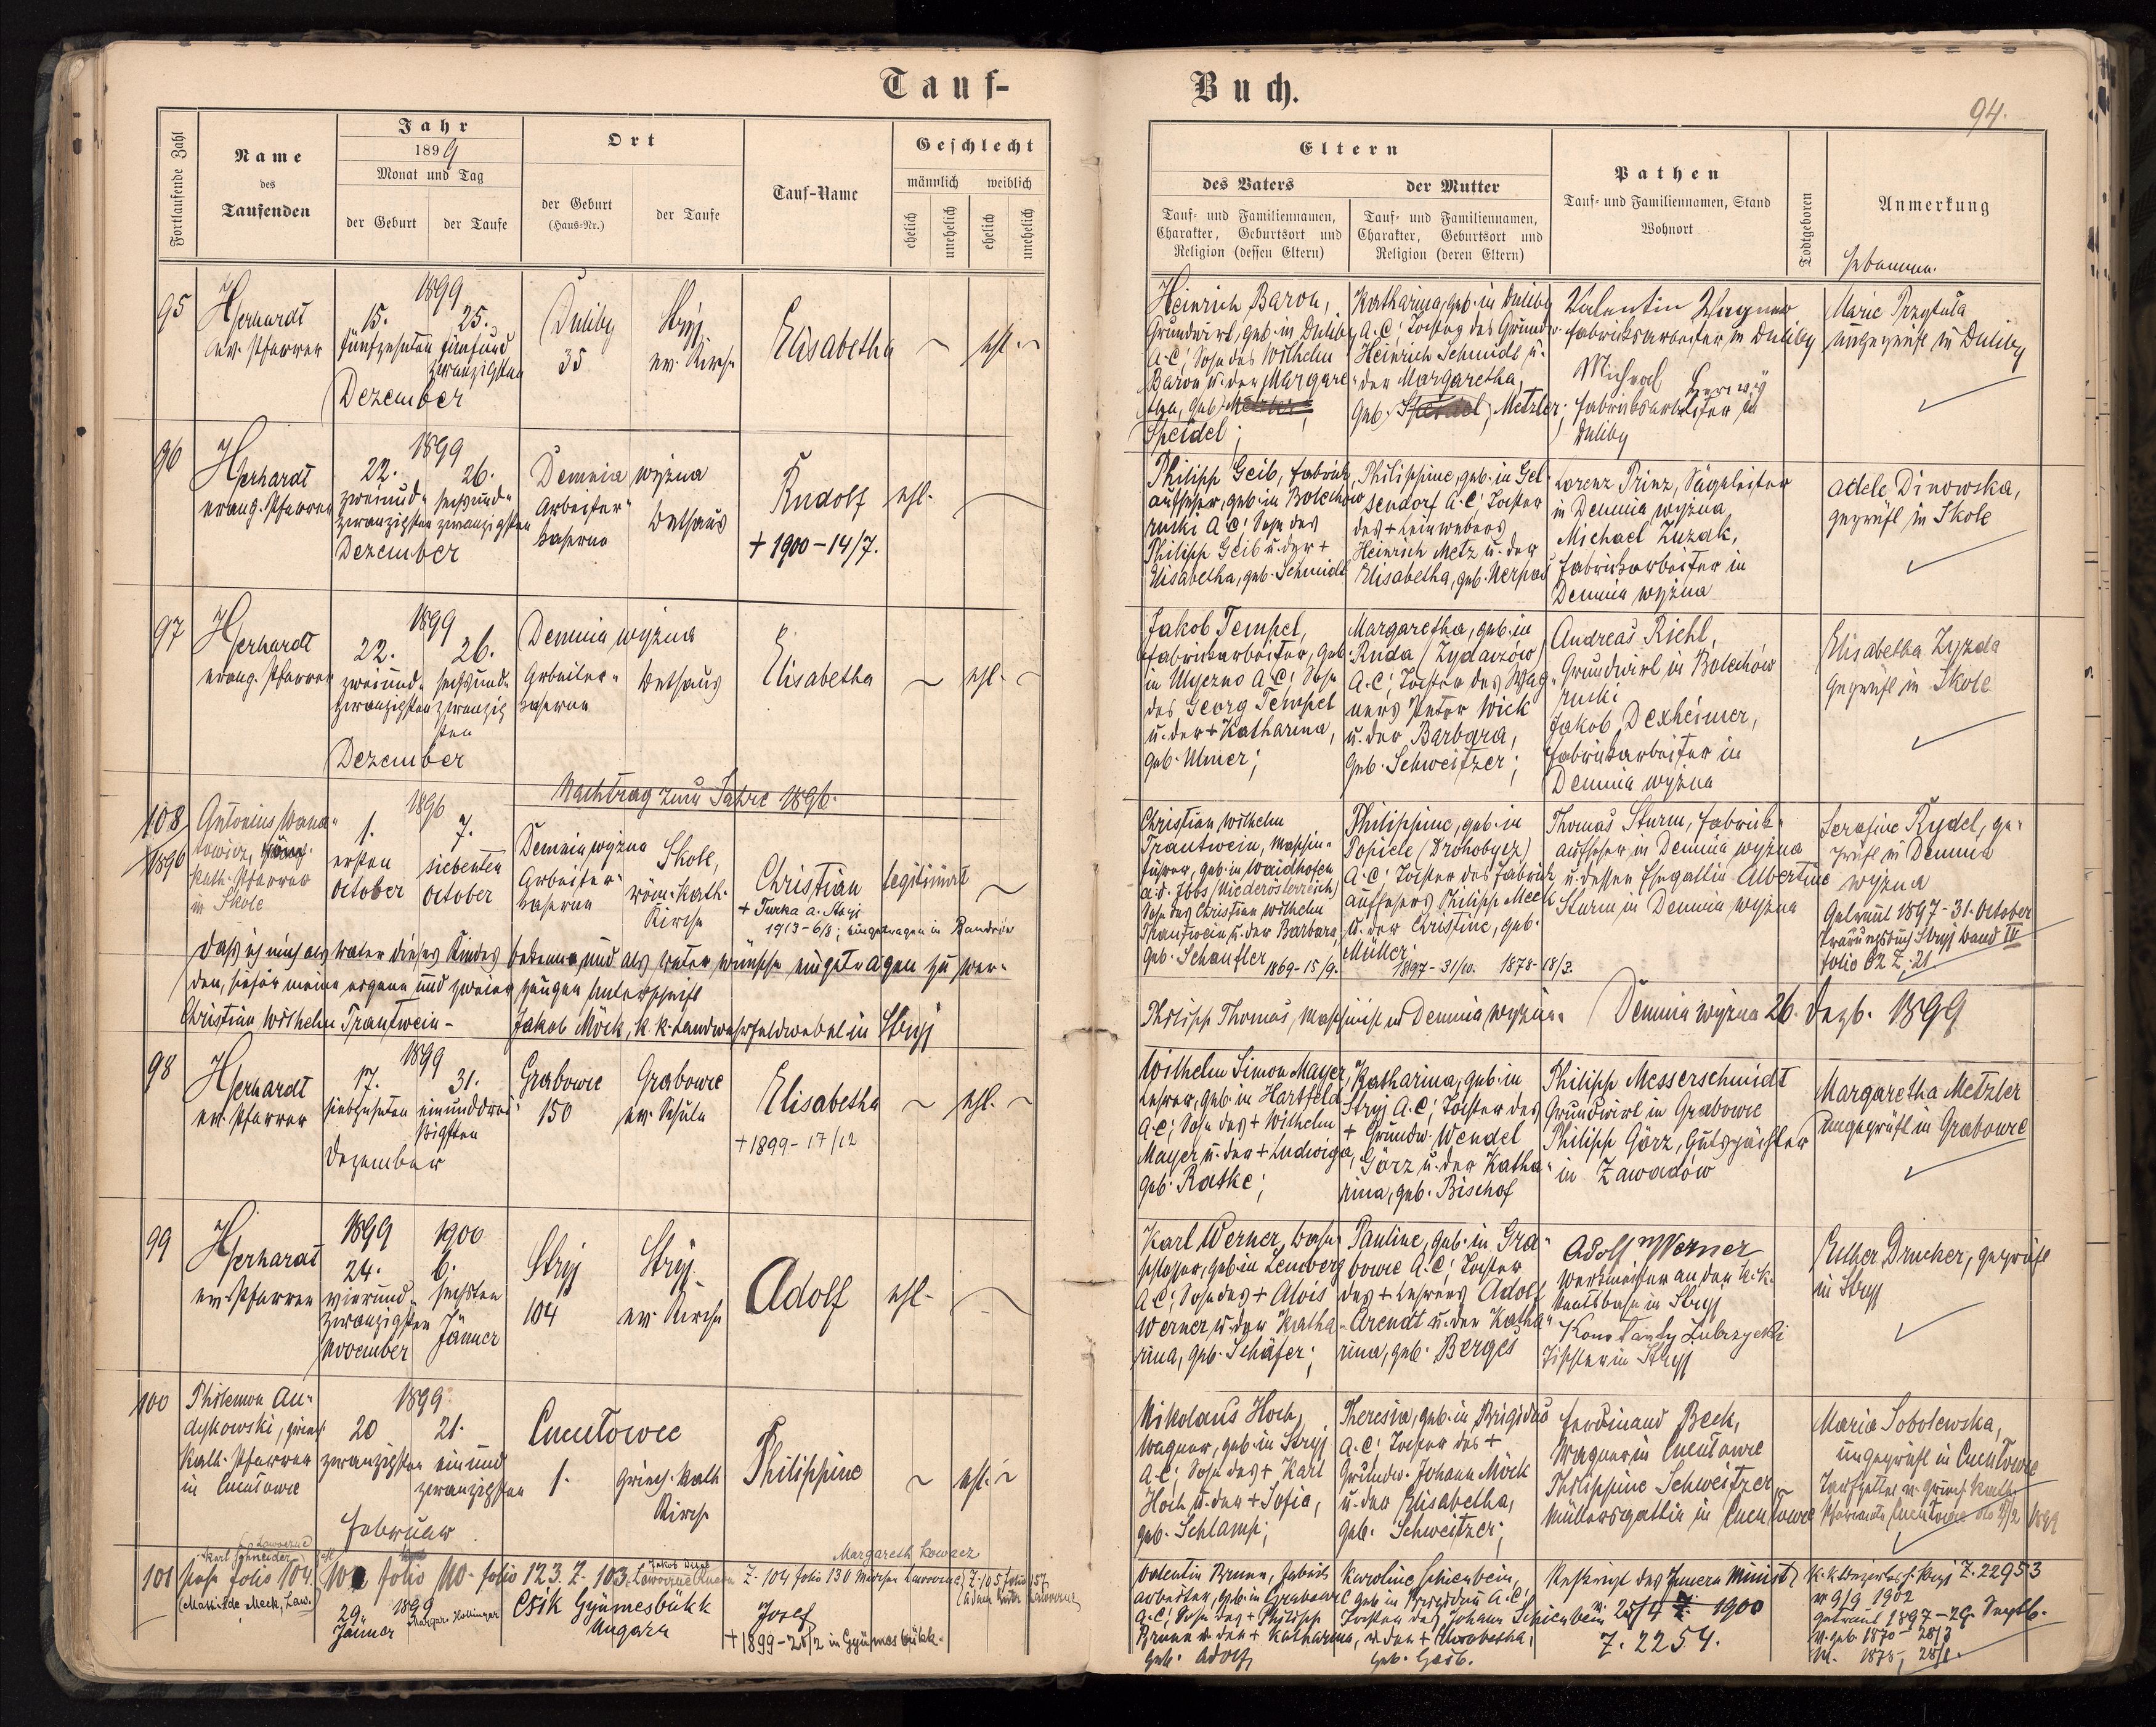 Tauf-
Buch.
94.
Fortlaufende Zahl
Name
des
Taufenden
Jahr
1899
Monat und Tag
der Geburt
der Taufe
Ort
der Geburt
(Haus-Nr.)
der Taufe
Tauf-Name
Geschlecht
männlich weiblich
ehelich
unehelich
ehelich
unehelich
Eltern
des Vaters
der Mutter
Tauf- und Familiennamen,
Charakter, Geburtsort und
Religion (dessen Eltern)
Tauf- und Familiennamen,
Charakter, Geburtsort und
Religion (deren Eltern)
Pathen
Tauf- und Familiennamen, Stand
Wohnort
Todtgeboren
Anmerkung
Hebamme.
95
ev. Pfarrer
1899
15. 25.
fünfzehnten fünfund
zwanzigsten
Dezember
Duliby
35
Stryj
ev. Kirche
Elisabetha
ehl.
Heinrich Baron,
Grundwirt, geb. in Duliby
A.C; Sohn des Wilhelm
Baron u. der Margare
tha, geb.
Speidel;
Katharina, geb. in Duliby
A.C; Tochter des Grundw.
Heinrich Schmidt u.
der Margaretha,
geb. Metzler;
Valentin Wagner
Fabriksarbeiter in Duliby
Michael
Fabriksarbeiter in
Duliby
Marie Przytula
ungeprüft in Duliby
96
evang. Pfarrer
1899
22. 26.
zweiund- sechsund-
zwanzigsten zwanzigsten
Dezember
Demnia wyżna
Arbeiter-
kaserne
Bethaus
Rudolf
+ 1900 - 14/7.
ehl.
Philipp Geib, Fabriks
aufseher, geb. in Bolechów
ruski A.C; Sohn des
Philipp Geib u. der +
Elisabetha, geb. Schmidt
Philippine, geb. in Gel-
sendorf A.C; Tochter
des + Leinwebers
Heinrich Metz u. der
Elisabetha, geb.
Lorenz Prinz, Sägeleiter
in Demnia wyżna
Michael Luzak,
Fabriksarbeiter in
Demnia wyżna
Adele Dinowska,
geprüft in Skole
97
evang. Pfarrer
1899
22. 26.
zweiund- sechsund-
zwanzigsten zwanzig
sten
Dezember
Demnia wyżna
Arbeiter-
kaserne
Bethaus
Elisabetha
ehl.
Jakob Tempel,
Fabriksarbeiter, geb.
in Ulyczno A.C; Sohn
des Georg Tempel
u. der + Katharina,
geb. Ulmer;
Margaretha, geb. in
Ruda (Zydaczów)
A.C; Tochter des Wag-
ners Peter Wick
u. der Barbara,
geb. Schweitzer;
Andreas Riehl,
Grundwirt in Bolechów
ruski
Jakob Dexheimer,
Fabriksarbeiter in
Demnia wyżna
Elisabetha Zyzda
geprüft in Skole
Nachtrag zum Jahre 1896.
108
1896
Antonius
kath. Pfarrer
in Skole
1896
1. 7.
ersten siebenten
October October
Demnia wyżna
Arbeiter-
kaserne
Skole,
röm. kath.
Kirche
Christian
+ Turka a. Stryj
1913 - 6/8; eingetragen in Bandrów
legitimirt
Christian Wilhelm
Trautwein, Maschin-
führer, geb. in Waidhofen
a.d. Ybbs (Niederösterreich)
Sohn des Christian Wilhelm
Trautwein u. der Barbara,
geb. Schaufler 1869 - 15/9.
Philippine, geb. in
Popiele (Drohobycz)
A.C; Tochter des Fabriks
aufsehers Philipp Meck
u. der Christine, geb.
Müller.
1897 - 31/10. 1878 - 18/3.
Thomas Sturm, Fabriks-
aufseher in Demnia wyżna
u. dessen Ehegattin Albertine
Sturm in Demnia wyżna
Serafine Rydel, ge-
prüft in Demnia
wyżna
Getraut 1897 - 31. October
Trauungsbuch Stryj Band IV
folio 62 Z. 21.
Daß ich mich als Vater dieses Kindes bekenne und als Vater wünsche eingetragen zu wer-
den, hiefür meine eigene und zweier Zeugen Unterschrift
Christian Wilhelm Trautwein - Jakob Möck, k.k. Landwehrfeldwebel in Stryj
Philipp Thomas, Maschinist in Demnia wyżna. Demnia wyżna 26. Dezb. 1899
98
ev. Pfarrer
1899
17. 31.
siebzehnten einunddrei-
ßigsten
Dezember
Grabowce
150
Grabowce
ev. Schule
Elisabetha
+ 1899 - 17/12
ehl.
Wilhelm Simon Mayer,
Lehrer, geb. in Hartfeld
A.C; Sohn des + Wilhelm
Mayer u. der + Ludwiga,
geb. Ratke;
Katharina, geb. in
Stryj A.C; Tochter des
+ Grundw. Wendel
Görz u. der Katha-
rina, geb. Bischof
Philipp Messerschmidt
Grundwirt in Grabowce
Philipp Görz, Gutspächter
in Zawadów
Margaretha Metzler
ungeprüft in Grabowce
99
ev. Pfarrer
1899 1900
24. 6.
vierund- sechsten
zwanzigsten Jänner
November
Stryj
104
Stryj
ev. Kirche
Adolf
ehl.
Karl Werner, Bahn-
schlosser, geb. in Lemberg
A.C; Sohn des + Alois
Werner, u. der Katha-
rina, geb. Schäfer;
Pauline, geb. in Gra-
bowce A.C; Tochter
des + Lehrers Adolf
Arendt u. der Katha-
rina, geb. Berges
Adolf Werner
Werkmeister an der k.k.
Staatsbahn in Stryj
Konstanty Zubrzycki
Tischler in Stryj
Esther Drucker, geprüft
in Stryj
100
Philemon An-
dykowski, griech.
kath. Pfarrer
in Cucułowce
1899
20 21.
zwanzigsten einund
zwanzigsten
Februar
Cucułowce
1.
griech. kath
Kirche
Philippine
ehl.
Nikolaus Hoch,
Wagner, geb. in Stryj
A.C; Sohn des + Karl
Hoch u. der + Sofia,
geb. Schlamp;
Theresia, geb. in Brigidau
A.C; Tochter des +
Grundw. Johann Möck
u. der Elisabetha,
geb. Schweitzer;
Ferdinand Beck,
Wagner in Cucułowce
Philippine Schweitzer,
Müllersgattin in Cucułowce
Maria Sobolewska,
ungeprüft in Cucułowce
101
Karl Schneider
siehe folio 104.
(Mathilde Meck, Law.
folio 110. folio 123. Z. 103.
Z. 104 folio 130
Margareth Kowacz
29. 1899
Jänner
Csik Gyümesbükk
Ungarn
Josef
+ 1899 - 28/2 in Gyümesbükk.
Valentin Brunn, Fabriks
arbeiter, geb. in Grabowce
A.C; Sohn des + Philipp
Brunn u. der + Katharina,
geb. Adolf
Karoline Schienbein,
geb. in Brigidau A.C;
Tochter des Johann Schienbein
u. der + Elisabetha,
geb. Geib.
Reskript des Innern Minist.
v. 25/4 1900
Z. 2254.
Z. 22953
v. 9/9 1902
getraut 1897 - 29. Septb.